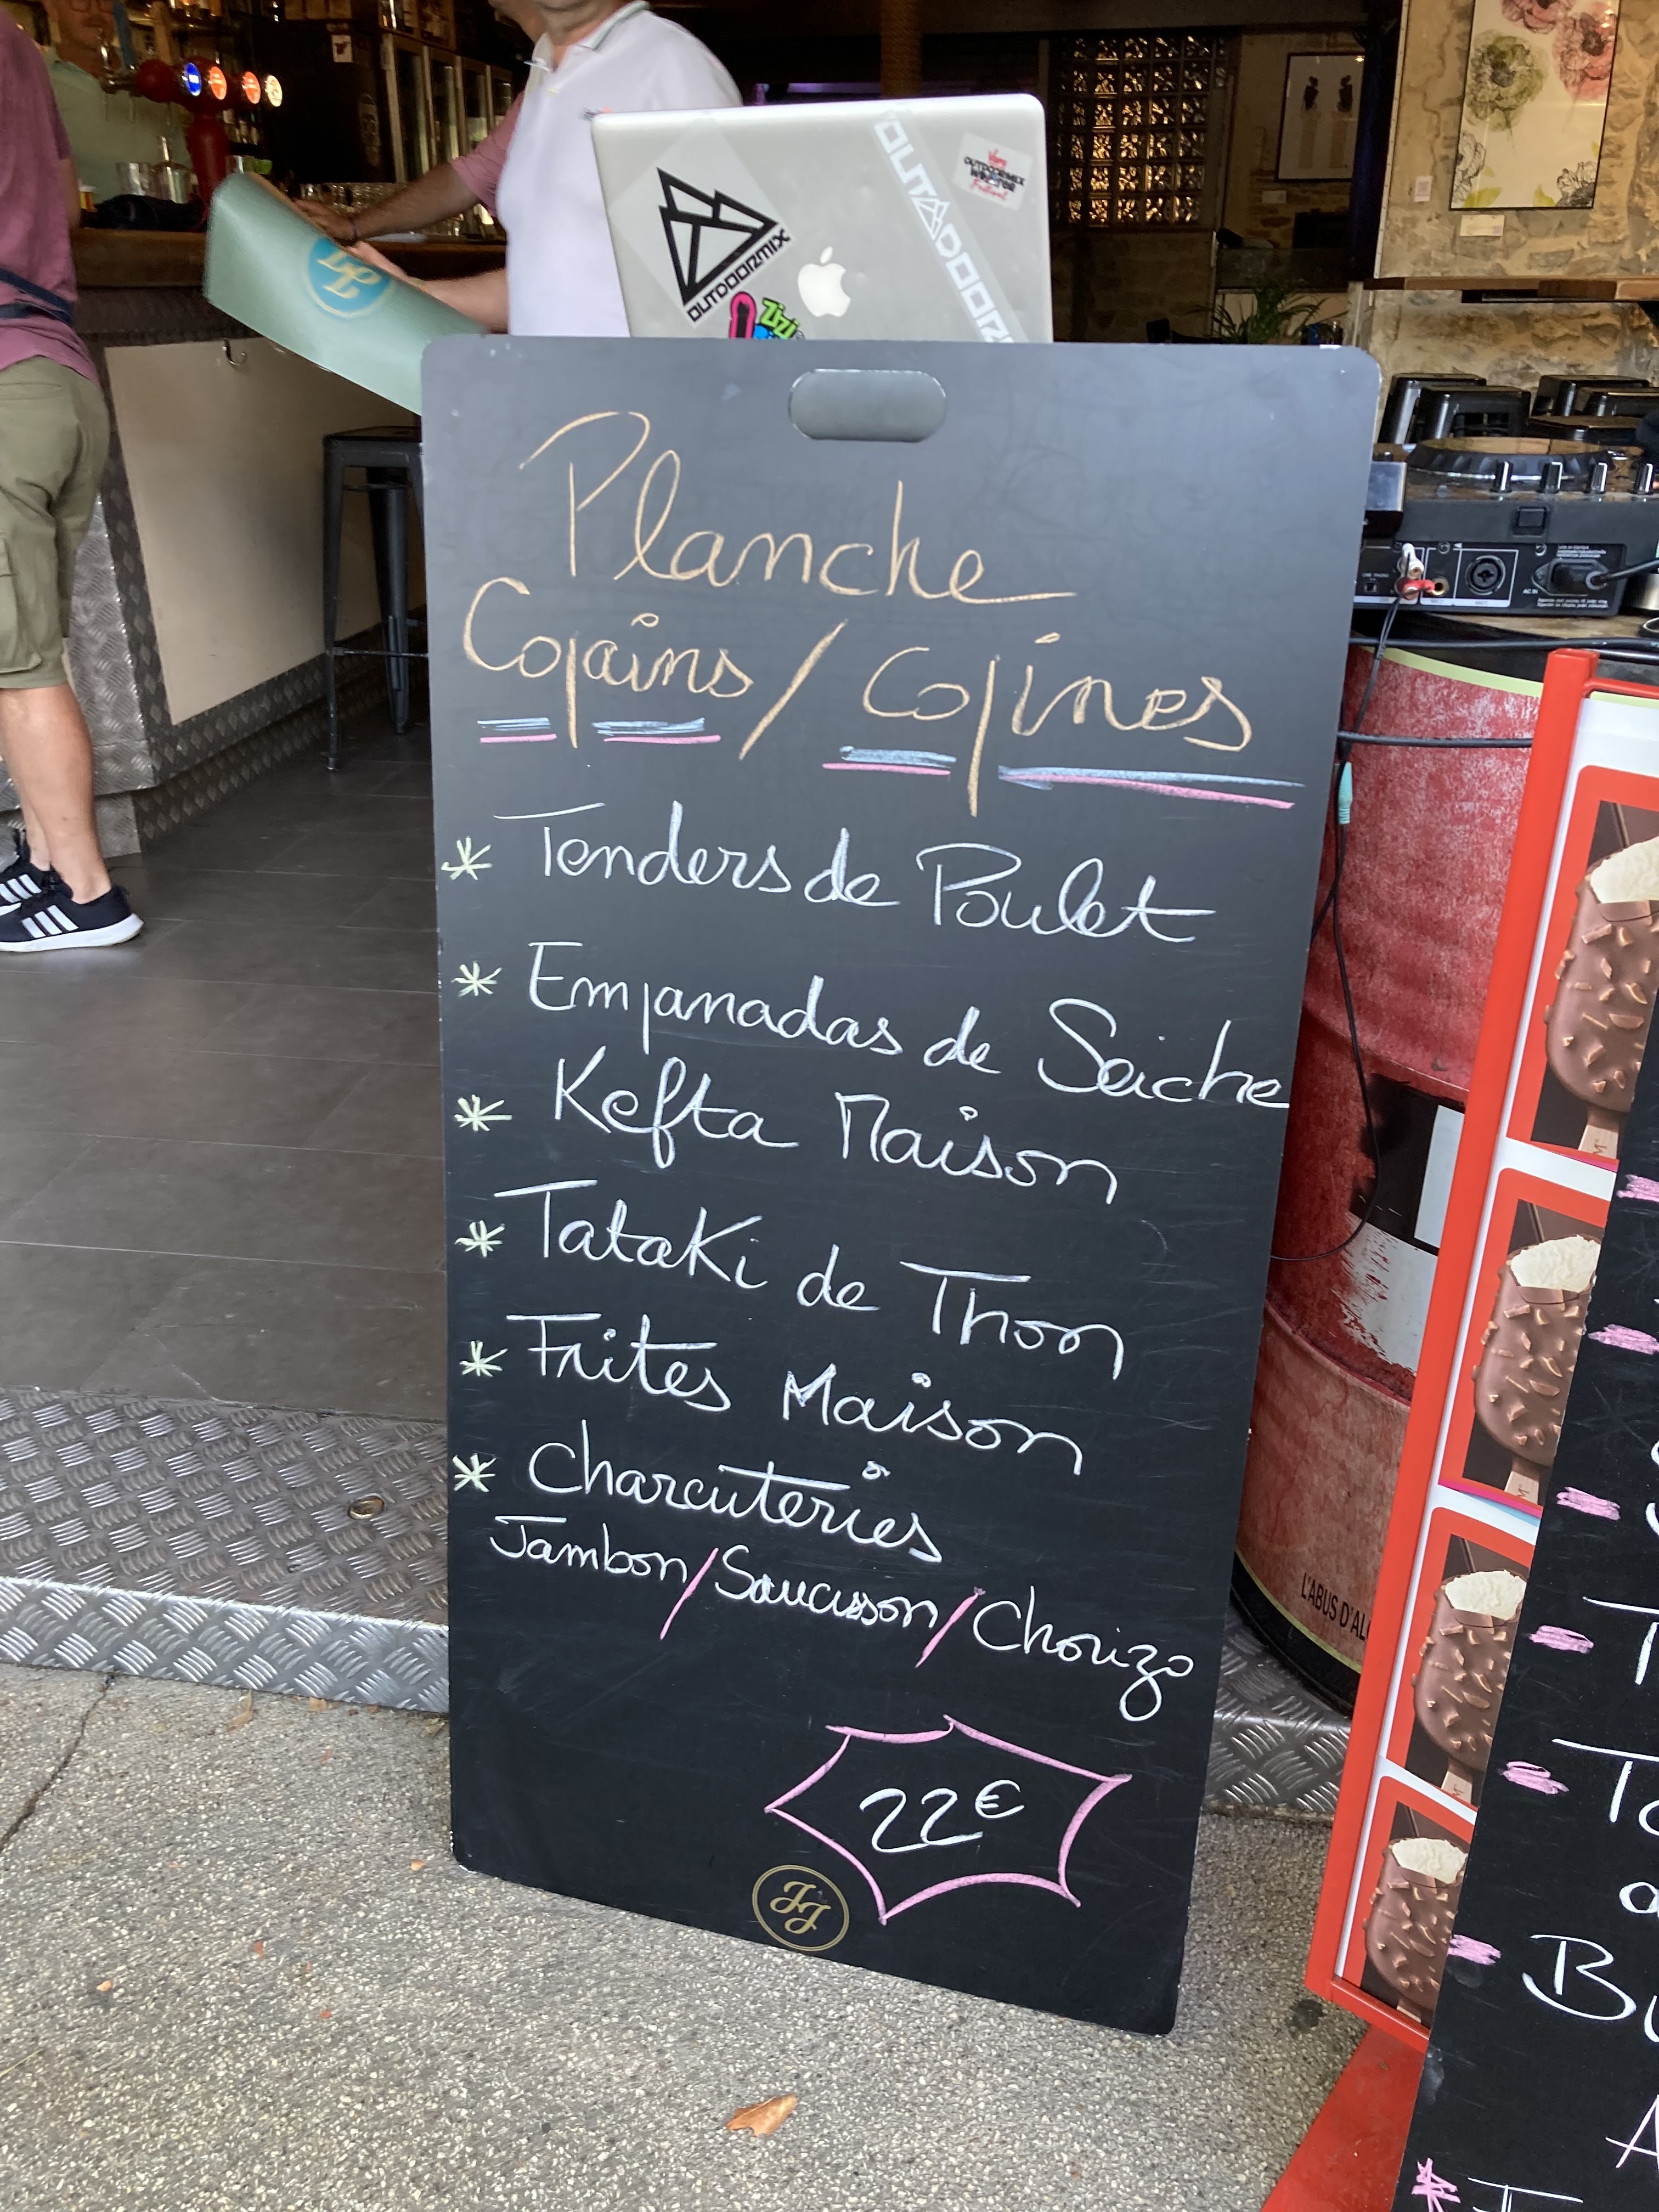 OUTDOORMIX
OUTDOORMIX
OUTDOORMIX
WINTER
Festival
Zizi
Planche
Copains / Copines
* Tenders de Poulet
* Empanadas de Seiche
* Kefta Maison
* Tataki de Thon
* Frites Maison
* Charcuteries
Jambon/Saucisson/Chorizo
22€
JJ
AC IN
L'ABUS D'AL